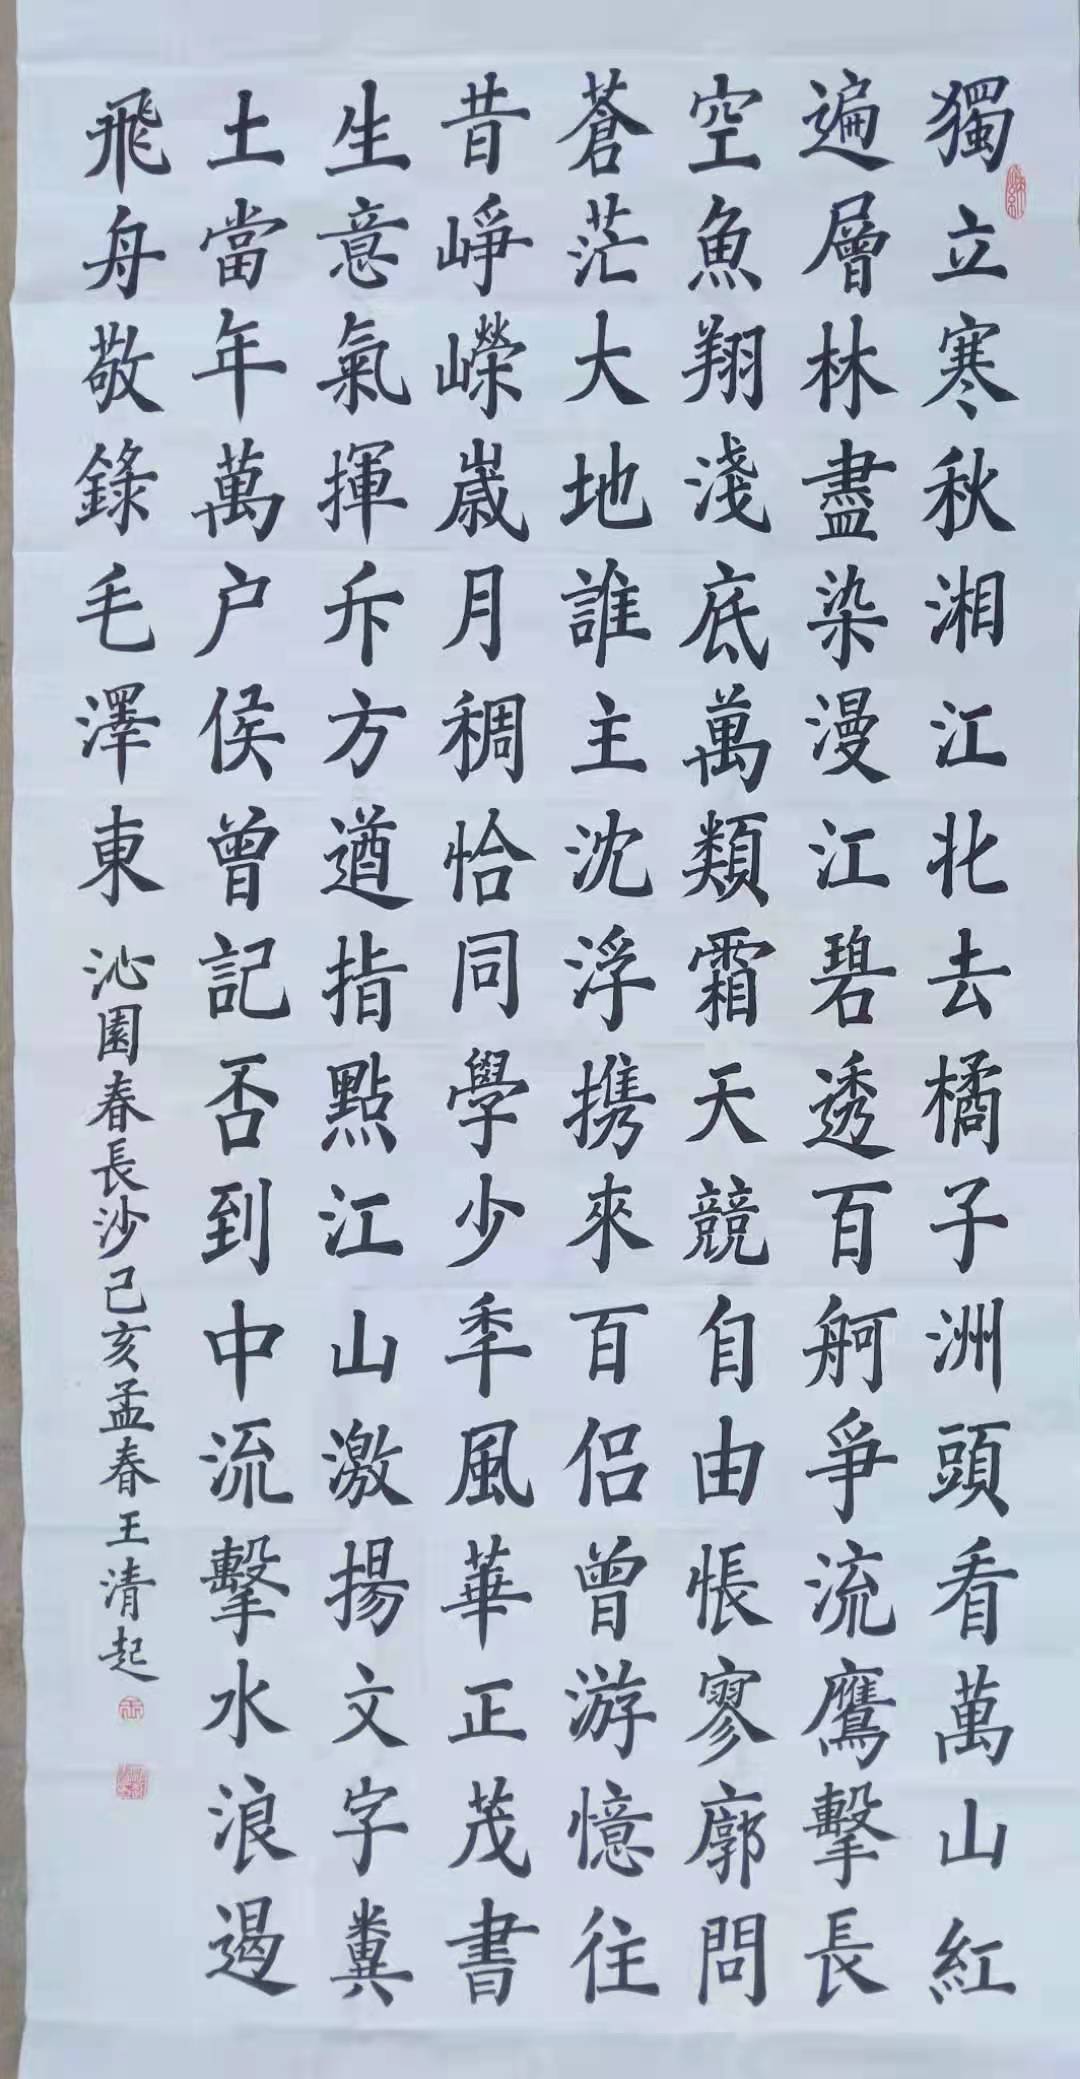 獨立寒秋湘江北去橘子洲頭看萬山紅
遍層林盡染漫江碧透百舸爭流鷹擊長
空魚翔淺底萬類霜天競自由悵寥廓問
蒼茫大地誰主沈浮携來百侣曾游憶往
昔崢嶸歲月稠恰同學少年風華正茂書
生意氣揮斥方遒指點江山激揚文字糞
土當年萬户侯曾記否到中流擊水浪遏
飛舟敬錄毛澤東沁園春長沙己亥孟春王清起